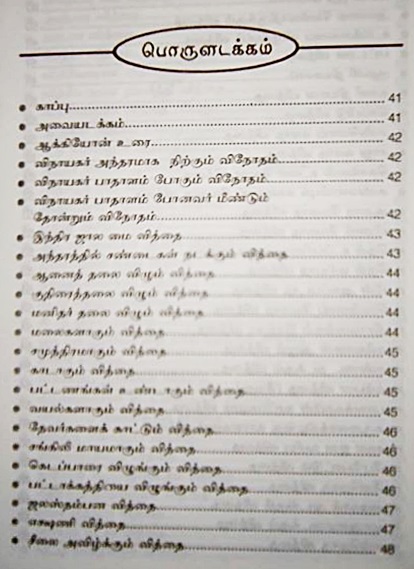 பொருளடக்கம்
காப்பு 41
அவையடக்கம் 41
ஆக்கியோன் உரை 42
விநாயகர் அந்தரமாக நிற்கும் விநோதம் 42
விநாயகர் பாதாளம் போகும் விநோதம் 42
விநாயகர் பாதாளம் போனவர் மீண்டும்
தோன்றும் விநோதம் 42
இந்திர ஜால மை வித்தை 43
அந்தரத்தில் சண்டைகள் நடக்கும் வித்தை 43
ஆனைத் தலை விழும் வித்தை 44
குதிரைத்தலை விழும் வித்தை 44
மனிதர் தலை விழும் வித்தை 44
மலைகளாகும் வித்தை 44
சமுத்திரமாகும் வித்தை 45
காடாகும் வித்தை 45
பட்டணங்கள் உண்டாகும் வித்தை 45
வயல்களாகும் வித்தை 45
தேவர்களைக் காட்டும் வித்தை 46
சங்கிலி மாயமாகும் வித்தை 46
கெடப்பாரை விழுங்கும் வித்தை 46
பட்டாக்கத்தியை விழுங்கும் வித்தை 46
ஜலஸ்தம்பன வித்தை 47
எக்ஷணி வித்தை 47
சீலை அவிழ்க்கும் வித்தை 48